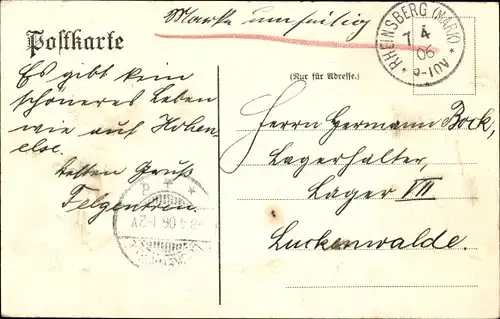 Marke umseitig
Postkarte
RHEINSBERG (MARK)
7 4
06
9-10V
(Nur für Adresse.)
Es gibt kein
schöneres Leben
wie auf Hohen-
else.
besten Gruß
Felgentreu.
8.4.06.1-2N
Herrn Hermann Bock,
Lagerhalter,
Lager VII
Luckenwalde.